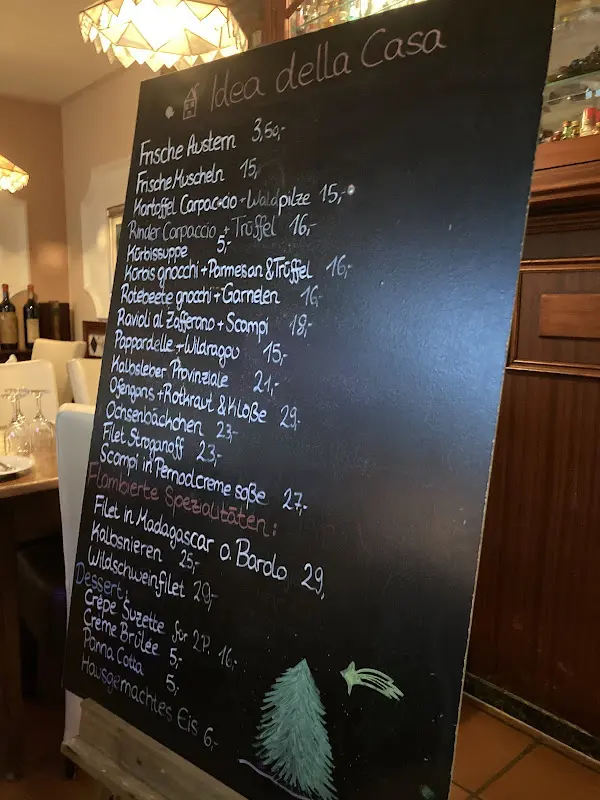 Idea della Casa
Frische Austern 3,50,-
Frische Muscheln 15,
Kartoffel Carpaccio + Waldpilze 15,-
Rinder Carpaccio + Trüffel 16,-
Kürbissuppe 5,-
Kürbis gnocchi + Parmesan & Trüffel 16,-
Rotebeete gnocchi + Garnelen 16,-
Ravioli al Zafferano + Scampi 18,-
Pappardelle + Wildragou 15,-
Kalbsleber Provinziale 21,-
Ofengans + Rotkraut & Klöße 29,-
Ochsenbäckchen 23,-
Filet Stroganoff 23,-
Scampi in Pernodcreme soße 27,-
Flambierte Spezialitäten:
Filet in Madagascar o Barolo 29,
Kalbsnieren 25,-
Wildschweinfilet 29,-
Dessert:
Crêpe Suzette für 2P. 16,-
Creme Brûlée 5,-
Panna Cotta 5,-
Hausgemachtes Eis 6,-